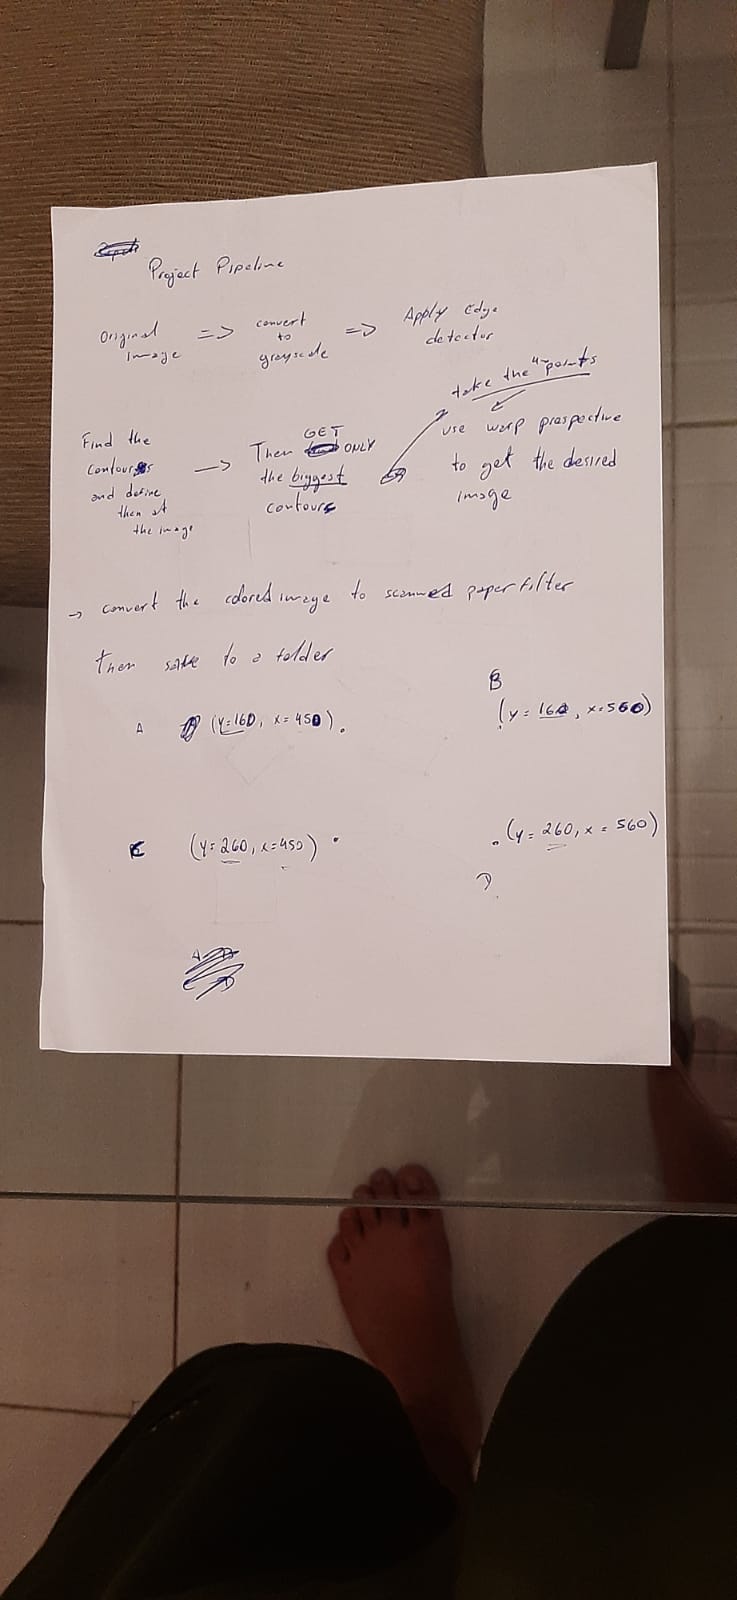 Project Pipeline
Original
image
=> convert
to
grayscale
=> Apply Edge
detector
Find the
contours
and define
then at
the image
-> Then GET ONLY
the biggest
contours
take the 4 points
use warp prespective
to get the desired
image
-> convert the colored image to scanned paper filter
then save to a folder
A (y=160, x=450).
B
(y=160, x=560)
C (y=260, x=450)
.(y=260, x=560)